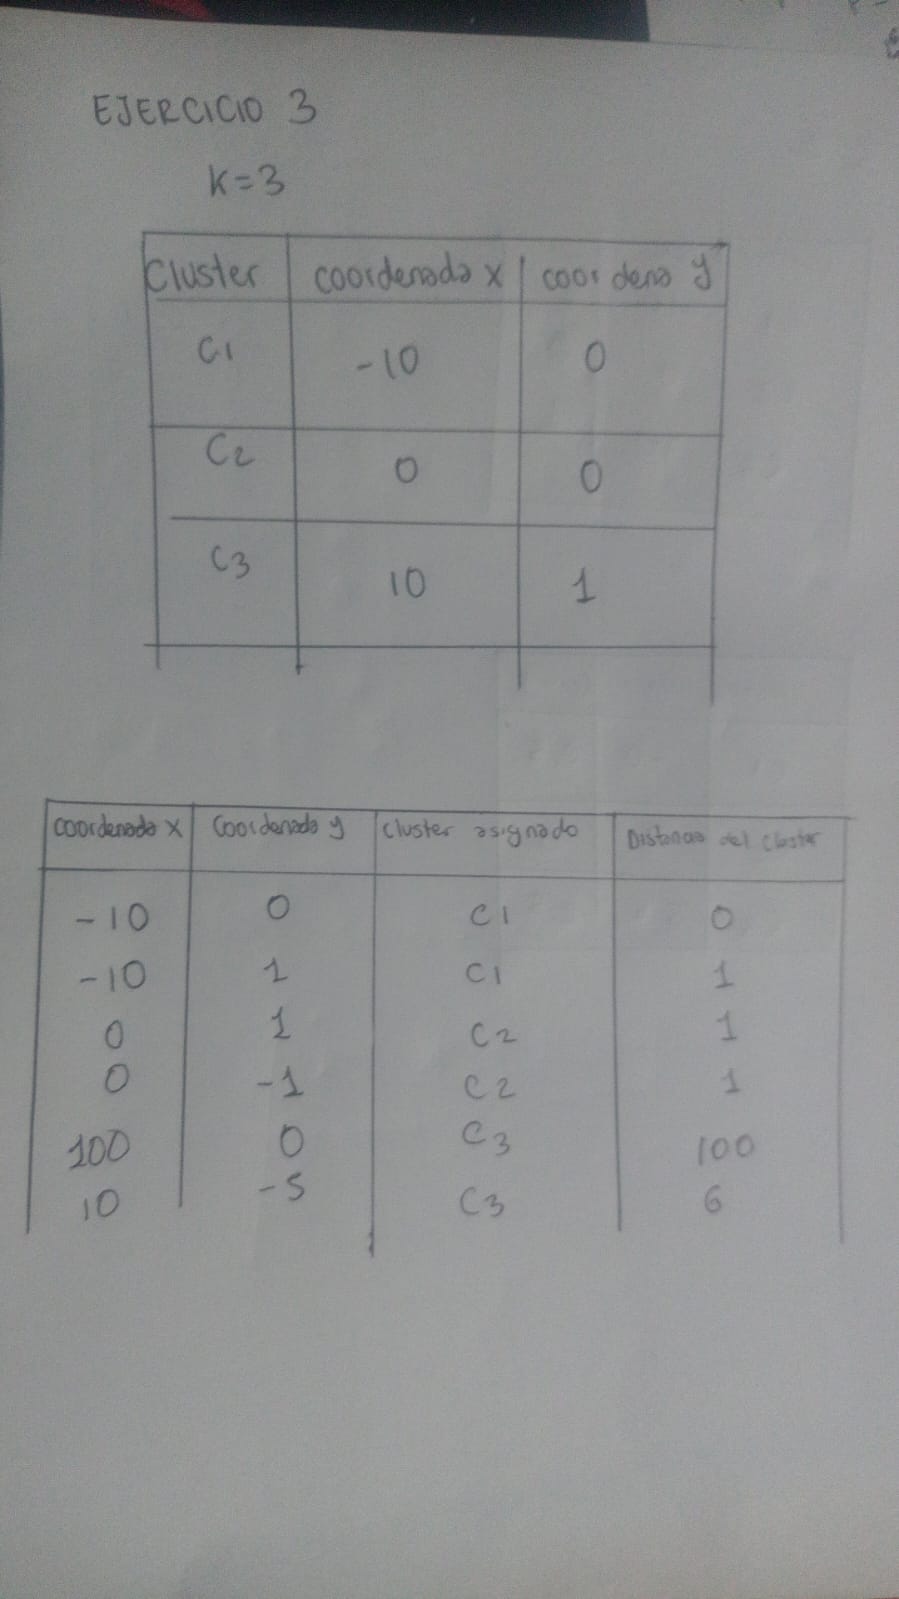 EJERCICIO 3
K=3
Cluster coordenada x coordena y
C1 -10 0
C2 0 0
C3 10 1
Coordenada x Coordenada y Cluster asignado Distancia del Cluster
-10 0 C1 0
-10 1 C1 1
0 1 C2 1
0 -1 C2 1
100 0 C3 100
10 -5 C3 6